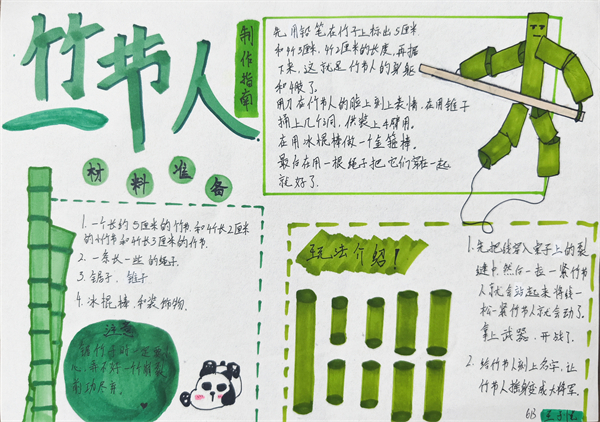 竹节人
制作指南
先用铅笔在竹子上标出5厘米
和3厘米,2厘米的长度,再锯
下来,这就是竹节人的身躯
和4肢了。
用刀在竹节人的脸上刻上表情,在用锥子
捅上几个洞,供装上4臂用。
在用冰棍棒做一个金箍棒。
最后在用一根绳子把它们穿在一起
就好了。
材料准备
1.一个长约5厘米的竹节和长2厘米
的竹节和长3厘米的竹节.
2.一条长一些的绳子.
3.锯子、锥子
4.冰棍棒和装饰物.
注意
锯竹子时一定要
小心,弄不好一个
前功尽弃。
玩法介绍!
1.先把线穿入桌子上的裂
缝中,然后一拉一紧竹节
人就会站起来将线一
松一紧竹节人就会动了.
拿上武器,开战了.
2.给竹节人刻上名字,让
竹节人摇身变成大将军.
6B